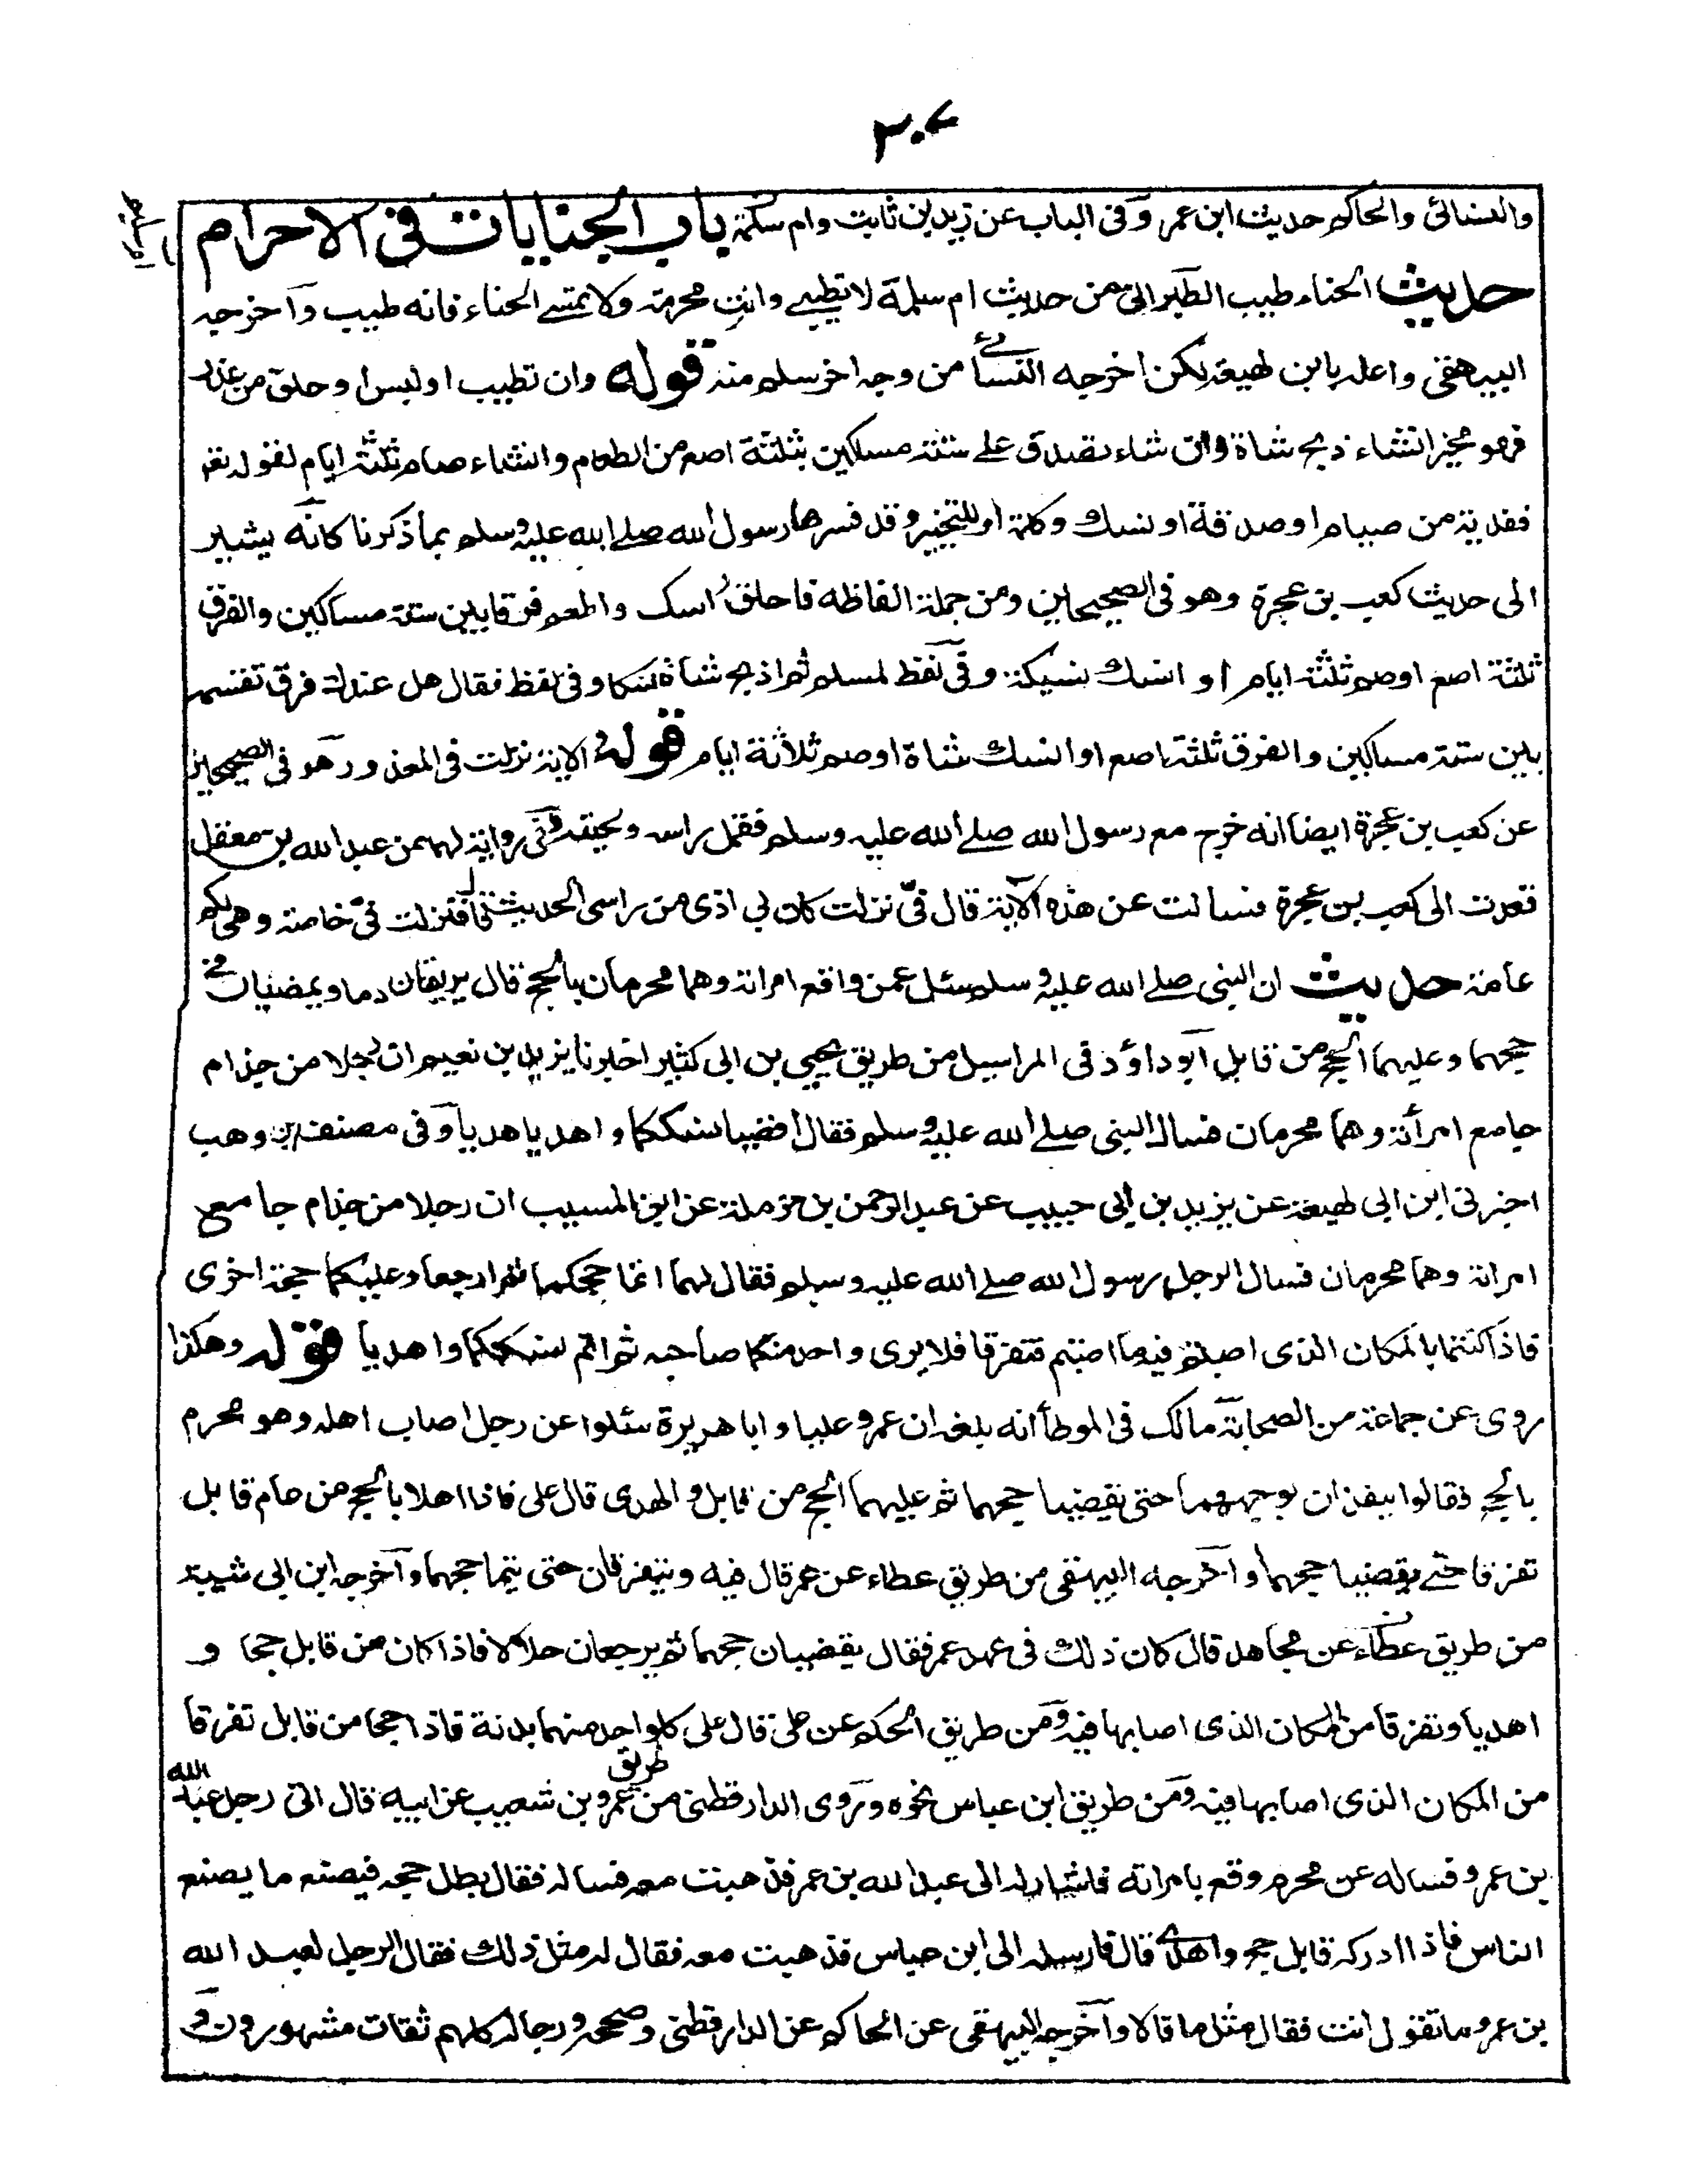 ٣٠٧
والنسائی والحاکم حدیث ابن عمر وفی الباب عن زید بن ثابت وام سلمة باب الجنایات فی الاحرام
حدیث الحناء طیب الطبرانی من حدیث ام سلمة لا تطیبی وانت محرمة ولا تمسی الحناء فانه طیب وأخرجه
البیهقی واعله بابن لهیعة لکن اخرجه النسائی من وجه اخر سلم منه قوله وان تطیب او لبس او حلق من عذر
فهو مخیر انشاء ذبح شاة وان شاء تصدق علی ستة مساکین بثلثة اصع من الطعام وانشاء صام ثلثة ایام لقوله تعم
ففدیة من صیام او صدقة او نسك وکلمة او للتخییر وقد فسرها رسول الله صلے الله علیه وسلم بما ذکرنا کانه یشیر
الی حدیث کعب بن عجرة وهو فی الصحیحین ومن جملة الفاظه فاحلق راسك واطعم فرقا بین ستة مساکین والفرق
ثلثة اصع او صم ثلثة ایام او انسك نسیکة وفی لفظ لمسلم ثم اذبح شاة نسکا وفی لفظ فقال هل عندك فرق تقسمه
بین ستة مساکین والفرق ثلثة اصع او انسك شاة او صم ثلاثة ایام قوله الایة نزلت فی المعذور هو فی الصحیحین
عن کعب بن عجرة ایضا انه خرج مع رسول الله صلے الله علیه وسلم فقمل راسه ولحیته وفی روایة لهما عن عبد الله بن معقل
قعدت الی کعب بن عجرة فسالت عن هذه الآیة قال فیّ نزلت کان بی اذی من راسی الحدیث فنزلت فیّ خاصة وهی لکم
عامة حدیث ان النبی صلے الله علیه وسلم سئل عمن واقع امراته وهما محرمان بالحج قال یریقان دما ویمضیان فی
حجهما وعلیهما الحج من قابل أبو داؤد فی المراسیل من طریق یحیی بن ابی کثیر اخبرنا یزید بن نعیم ان رجلا من جذام
جامع امرأته وهما محرمان فسال النبی صلے الله علیه وسلم فقال اقضیا نسککما واهدیا هدیا وفی مصنف ابن وهب
اخبرنی ابن ابی لهیعة عن یزید بن ابی حبیب عن عبد الرحمن بن حرملة عن ابن المسیب ان رجلا من جذام جامع
امراته وهما محرمان فسال الرجل رسول الله صلے الله علیه وسلم فقال لهما اتما حجکما ثم ارجعا وعلیکما حجة اخری
فاذا کنتما بالمکان الذی اصبتم فیه ما اصبتم فتفرقا فلا یری واحد منکما صاحبه ثم اتم نسککما واهدیا قوله وهکذا
روی عن جماعة من الصحابة مالک فی الموطأ انه بلغه ان عمر وعلیا وابا هریرة سئلوا عن رجل اصاب اهله وهو محرم
بالحج فقالوا ینفذان لوجههما حتی یقضیا حجهما ثم علیهما الحج من قابل والهدی قال علی فاذا اهلا بالحج من عام قابل
تفرقا حتے یقضیا حجهما وأخرجه البیهقی من طریق عطاء عن عمر قال فیه ویتفرقان حتی یتما حجهما وأخرجه ابن ابی شیبة
من طریق عطاء عن مجاهد قال کان ذلك فی عهد عمر فقال یقضیان حجهما ثم یرجعان حلالا فاذا کان من قابل حجا و
اهدیا وتفرقا من المکان الذی اصابها فیه ومن طریق الحکم عن علی قال علی کل واحد منهما بدنة فاذا حجا من قابل تفرقا
من المکان الذی اصابها فیه ومن طریق ابن عباس نحوه وروی الدارقطنی من طریق عمرو بن شعیب عن ابیه قال اتی رجل عبد الله
بن عمرو فساله عن محرم وقع بامراته فاشار له الی عبد الله بن عمر فذهبت معه فساله فقال بطل حجه فیصنع ما یصنع
الناس فاذا ادرکه قابل حج واهدی قال فارسله الی ابن عباس فذهبت معه فقال له مثل ذلك فقال الرجل لعبد الله
بن عمرو ما تقول انت فقال مثل ما قالا وأخرجه البیهقی عن الحاکم عن الدارقطنی وصححه ورجاله کلهم ثقات مشهورون و